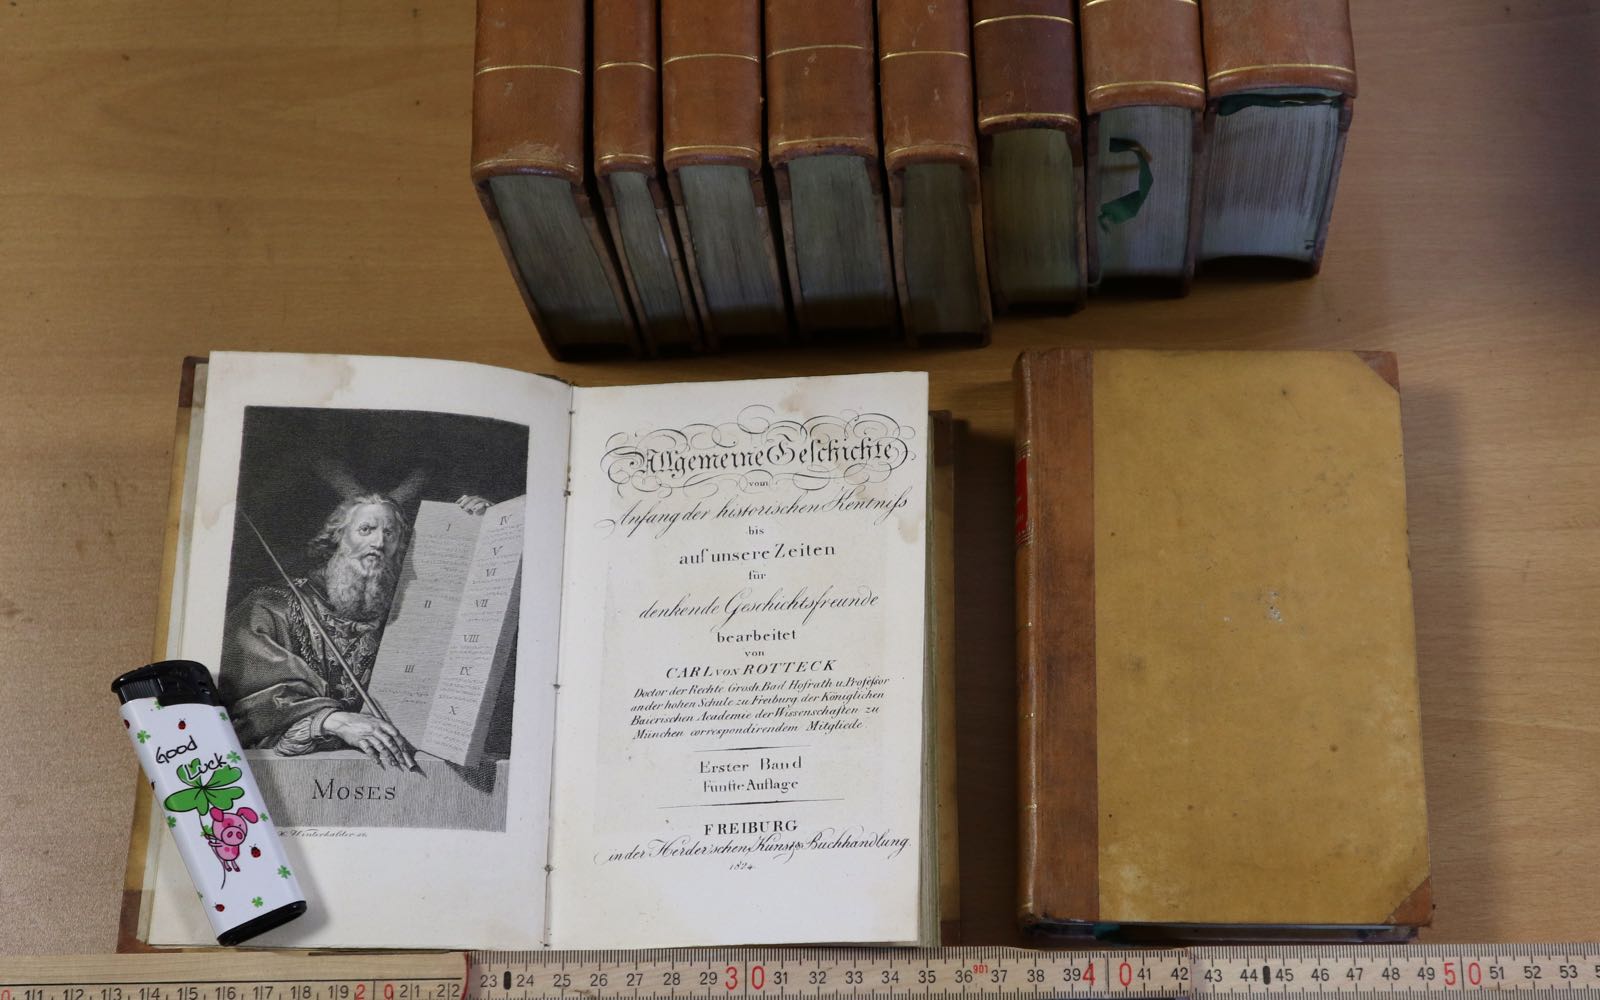 I
II
III
IV
V
VI
VII
VIII
IX
X
MOSES
Winterhalder sc.
Good
Luck
Allgemeine Geschichte
vom
Anfang der historischen Kentniſs
bis
auf unsere Zeiten
für
denkende Geschichtsfreunde
bearbeitet
von
CARL von ROTTECK
Doctor der Rechte Grosh. Bad. Hofrath u. Profeſsor
an der hohen Schule zu Freiburg der Königlichen
Baierischen Academie der Wissenschaften zu
München correspondirendem Mitgliede
Erster Band
Fünfte Auflage
FREIBURG
in der Herder'schen Kunst & Buchhandlung.
1824.
0 1|1 1|2 1|3 1|4 1|5 1|6 1|7 1|8 1|9 2 0 2|1 2|2 23 24 25 26 27 28 29 30 31 32 33 34 35 36 901 37 38 39 40 41 42 43 44 45 46 47 48 49 50 51 52 53